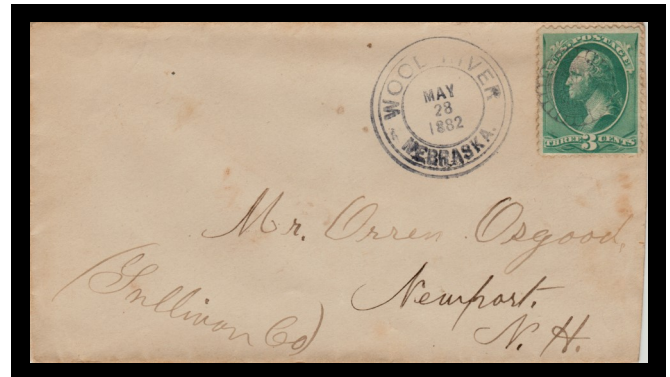 WOOD RIVER
MAY
28
1882
NEBRASKA.
U.S. POSTAGE
THREE 3 CENTS
Mr. Orren Osgood,
Newport.
(Sullivan Co)
N. H.